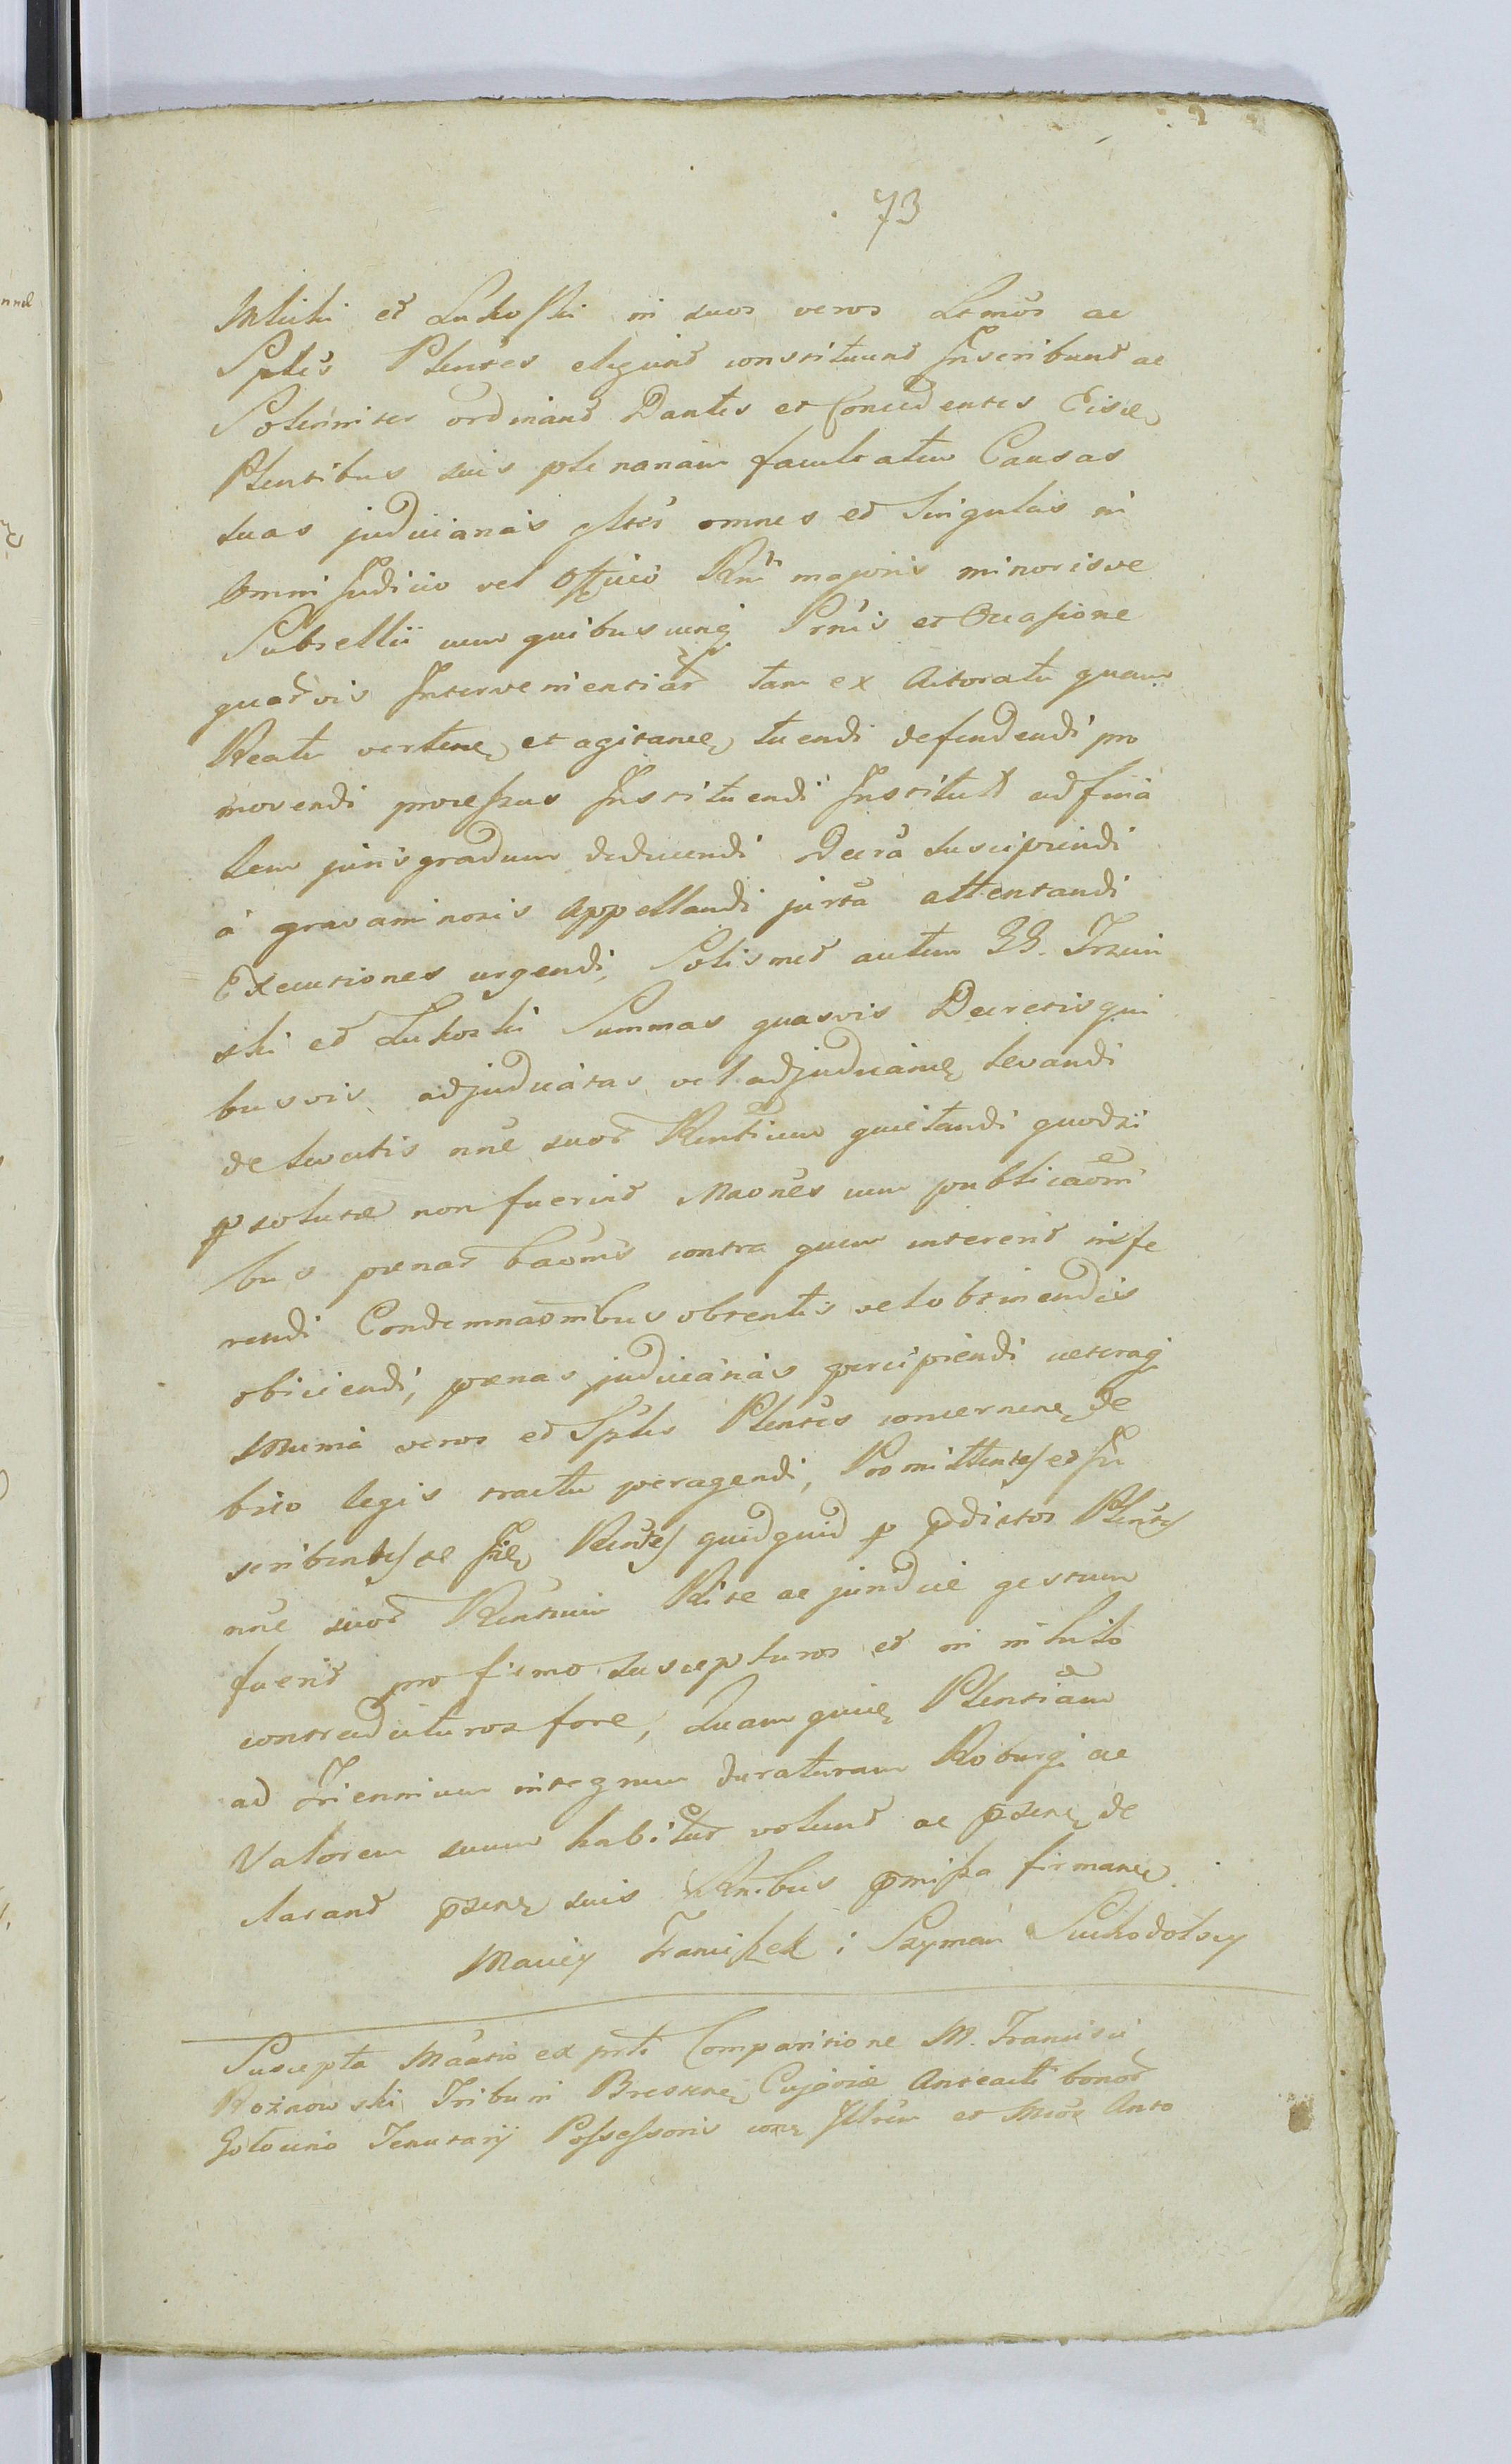 73
Mlicki et Lukoski in suos veros Ltmõs ac
Spłes Plentes eligunt constituunt Inscribunt ac
Solemniter ordinant Dantes et Concedentes Eisde
Plentibus suis plenariam facultatem Causas
suas judiciarias gltes omnes et Singulas in
omni Judicio vel officio Rni majoris minorisve
Subsellii cum quibuscunq Prnis et Occasione
quarvis Intervenientiar tam ex Actoratu quam
Reatu verten et agitan tuendi defendendi pro
movendi processus Instituendi Institut ad fina
lem juris gradum deducendi Decra suscipiendi
à gravaminosis Appellandi jurta attentandi
Executiones urgendi, Solismet autem GG. Trzcin
ski et Lukoski Summas quasvis Decretis qui
busvis adjudicatas vel adjudican levandi
de levatis nne suor Rentium quietandi quodsi
psolutæ non fuerint Maones cum publicaõni
bus pœnar baõnis contra quem intererit infe
rendi Condemnaõnibus obtentis vel obtinendis
obiiciendi, pœnas judiciarias percipiendi cæteraq
Munia veros et Spłes Plentes concernen de
bito legis tractu peragendi, Promittentes et In
scribentes se Iide Rentes quidquid p pdictos Plentes
nne suor Rentium Rite ac juridice gestum
fuerit pro firmo suscepturos et in nihilo
contradicturos fore, Quam quide Plentiam
ad Triennium integrum duraturam Roburq ac
Valorem suum habitur volunt ac psen de
clarant psen suis Rnibus pmissa firman
Maciey Franciszek i Szyman Suchodolscy
Suscepta Maatio ex prti Comparitione M. Francisci
Rożnowski Tribuni Bresten Cujaviæ Anteacti bonor
Gołocino Tenutarij Possessoris con Illrem et Mor Anto